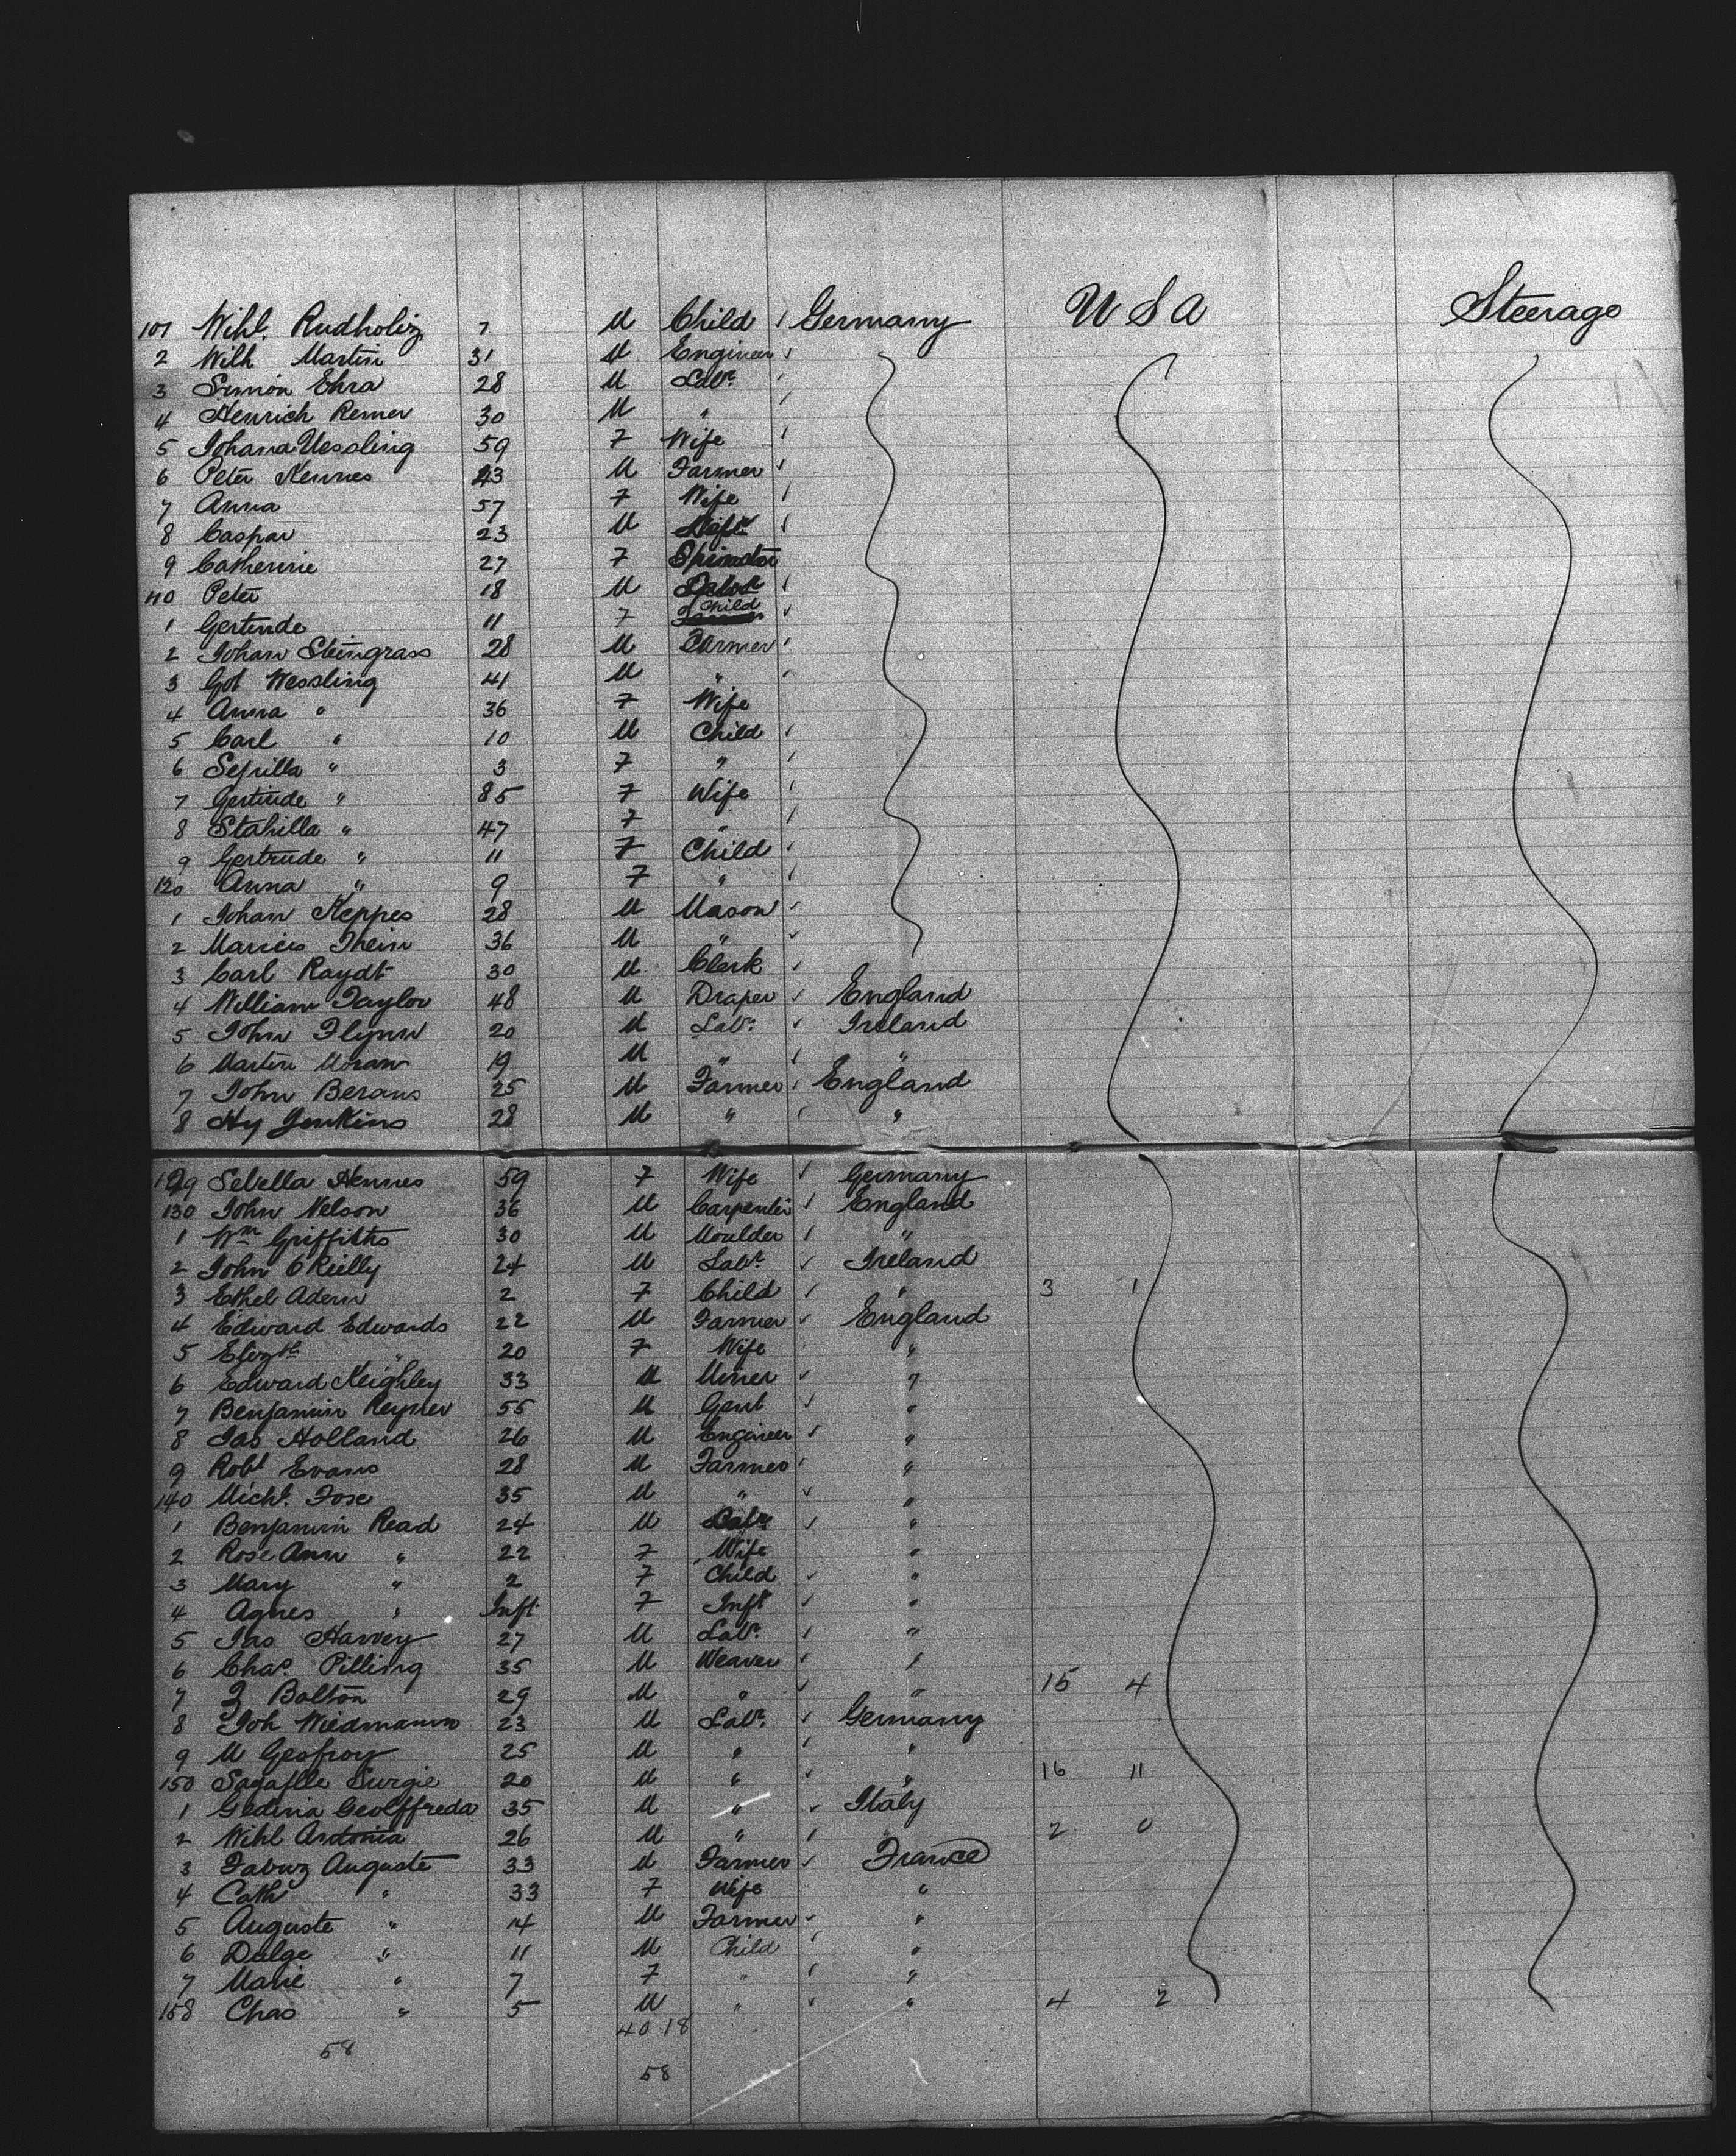 101 Wihl. Rudholiz 7 M Child Germany U S A Steerage
2 Wilh Martin 31 M Engineer
3 Simon Ehra 28 M Labr.
4 Henrich Remer 30 M "
5 Johana Wessling 59 F Wife
6 Peter Hennes 43 M Farmer
7 Anna 57 F Wife
8 Caspar 23 M
9 Catherine 27 F Spinster
110 Peter 18 M
1 Gertrude 11 F Child
2 Johan Steingrass 28 M Farmer
3 Got Wessling 41 M "
4 Anna " 36 F Wife
5 Carl " 10 M Child
6 Sefrilla " 3 F "
7 Gertrude " 85 F Wife
8 Stahilla " 47 F "
9 Gertrude " 11 F Child
120 Anna " 9 F "
1 Johan Keppes 28 M Mason
2 Marcis Thein 36 M "
3 Carl Raydt 30 M Clerk
4 William Taylor 48 M Draper England
5 John Flynn 20 M Labr. Ireland
6 Martin Moran 19 M " "
7 John Berans 25 M Farmer England
8 Hy Jenkins 28 M " "
129 Sebella Hennes 59 F Wife Germany
130 John Nelson 36 M Carpenter England
1 Wm Griffiths 30 M Moulder "
2 John O'Reilly 24 M Labr. Ireland
3 Ethel Adern 2 F Child " 3 1
4 Edward Edwards 22 M Farmer England
5 Elizth " 20 F Wife "
6 Edward Keighley 33 M Miner "
7 Benjamin Reyner 55 M Gent "
8 Jas Holland 26 M Engineer "
9 Robt Evans 28 M Farmer "
140 Michl. Fose 35 M " "
1 Benjamin Read 24 M Labr "
2 Rose Ann " 22 F Wife "
3 Mary " 2 F Child "
4 Agnes " Inft F Inft "
5 Jas Harvey 27 M Labr. "
6 Chas. Pilling 35 M Weaver "
7 J Bolton 29 M " " 15 4
8 Joh Wiedmann 23 M Labr. Germany
9 M Gesfroy 25 M " "
150 Sagaflle Surgie 20 M " " 16 11
1 Gedina Geolffreda 35 M " Italy
2 Wihl Antonia 26 M " 2 0
3 Fabuz Auguste 33 M Farmer France
4 Cath " 33 F Wife "
5 Auguste " 14 M Farmer "
6 Dulge " 11 M Child "
7 Marie " 7 F " "
158 Chas " 5 M " " 4 2
40 18
58
58